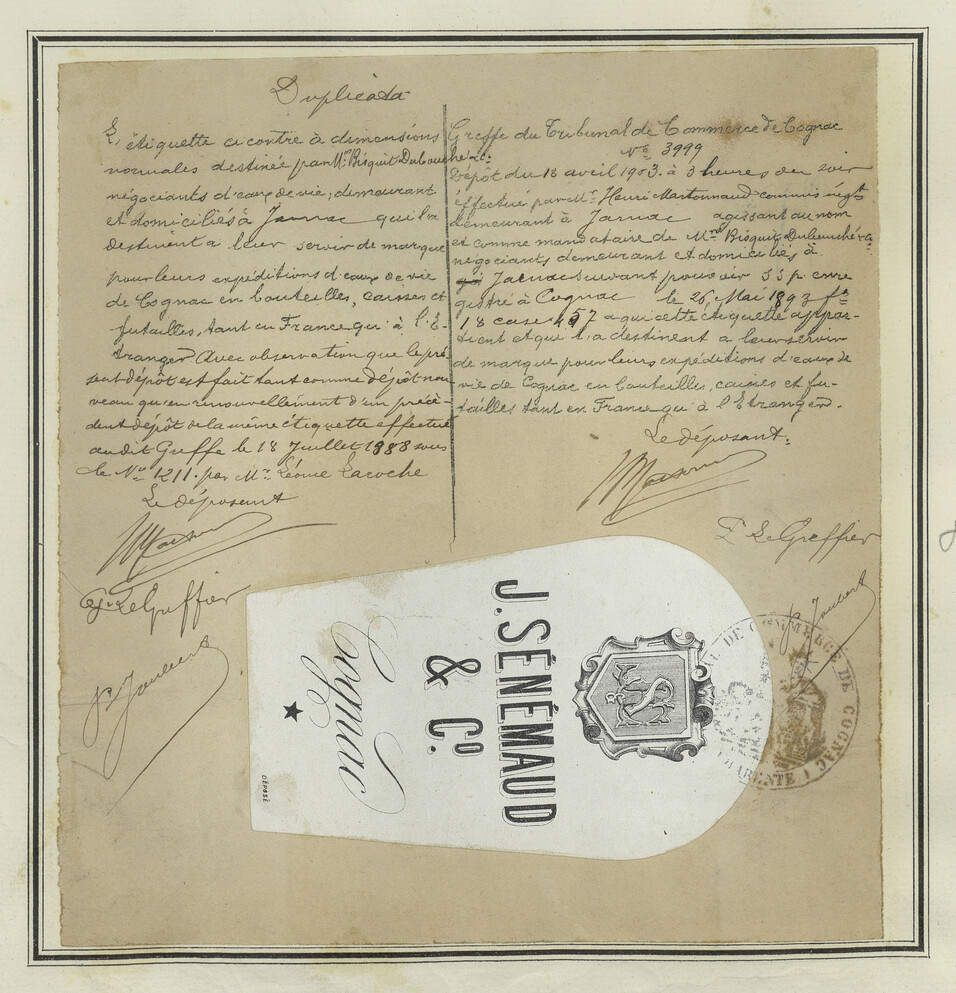 Duplicata
L'étiquette ci contre à dimensions
normales destinée par Mrs Bisquit Dubouché & Cie
négociants d'eaux de vie, demeurant
et domiciliés à Jarnac qui la
destinent à leur servir de marque
pour leurs expéditions d'eaux de vie
de Cognac en bouteilles, caisses et
futailles, tant en France qu'à l'E-
tranger. Avec observation que le pré-
sent dépôt est fait tant comme dépôt nou
veau qu'en renouvellement d'un précé-
dent dépôt de la même étiquette effectué
au dit Greffe le 18 Juillet 1888 sous
le No 1211. par Mr Léonce Laroche
Le déposant
Le Greffier
Greffe du Tribunal de Commerce de Cognac
No 3999
Dépôt du 18 avril 1903 à 3 heures du soir
effectué par Mr Henri Martonnaud commis négt
demeurant à Jarnac agissant au nom
et comme mandataire de Mrs Bisquit Dubouché & Cie
négociants demeurant et domiciliés à
Jarnac suivant pouvoir SS p. enre
gistré à Cognac le 26 Mai 1893 fo
18 case 457 à qui cette étiquette appar-
tient et qui la destinent à leur servir
de marque pour leurs expéditions d'eaux de
vie de Cognac en bouteilles, caisses et fu-
tailles tant en France qu'à l'Etranger.
Le déposant:
Le Greffier
J. SÉNÉMAUD
& Co.
Cognac
DÉPOSÉ
TRIBUNAL DE COMMERCE DE COGNAC
CHARENTE